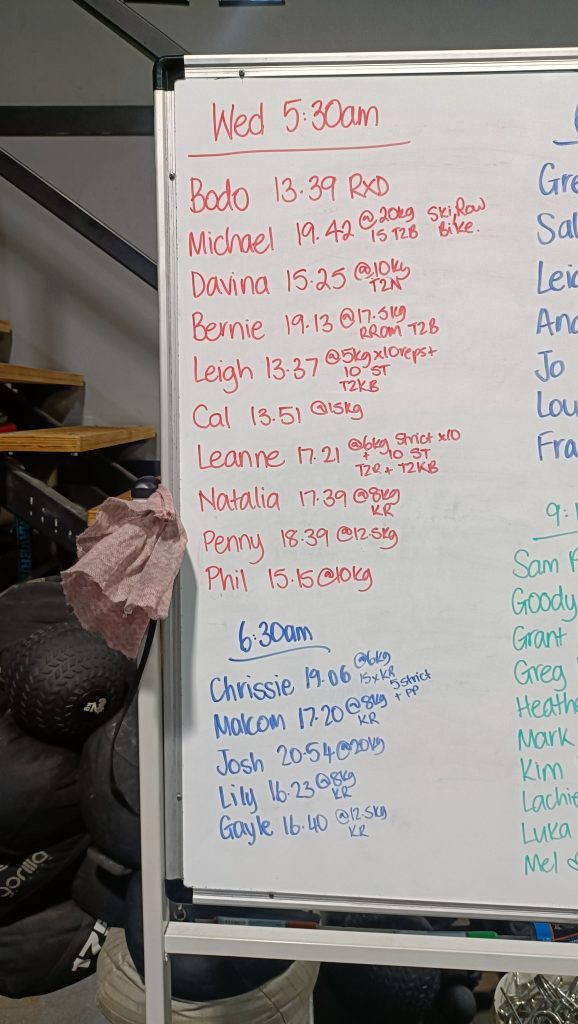 Wed 5:30am
Bodo 13.39 RXD
Michael 19.42 @20kg Ski, Row
15 T2B Bike.
Davina 15.25 @10kg
T2N
Bernie 19.13 @17.5kg
RROM T2B
Leigh 13.37 @5kg x10reps +
10 ST
T2KB
Cal 13.51 @15kg
Leanne 17.21 @6kg Strict x10
+ 10 ST
T2R + T2KB
Natalia 17.39 @8kg
KR
Penny 18.39 @12.5kg
Phil 15.15 @10kg
6:30am
Chrissie 19.06 @6kg
15xKR
Malcom 17.20 @8kg 5 strict
KR + PP
Josh 20.54 @20kg
Lily 16.23 @8kg
KR
Gayle 16.40 @12.5kg
KR
Gre
Sal
Leig
And
Jo
Lou
Fra
9:1
Sam
Goody
Grant
Greg
Heathe
Mark
Kim
Lachie
Luka
Mel
orilla